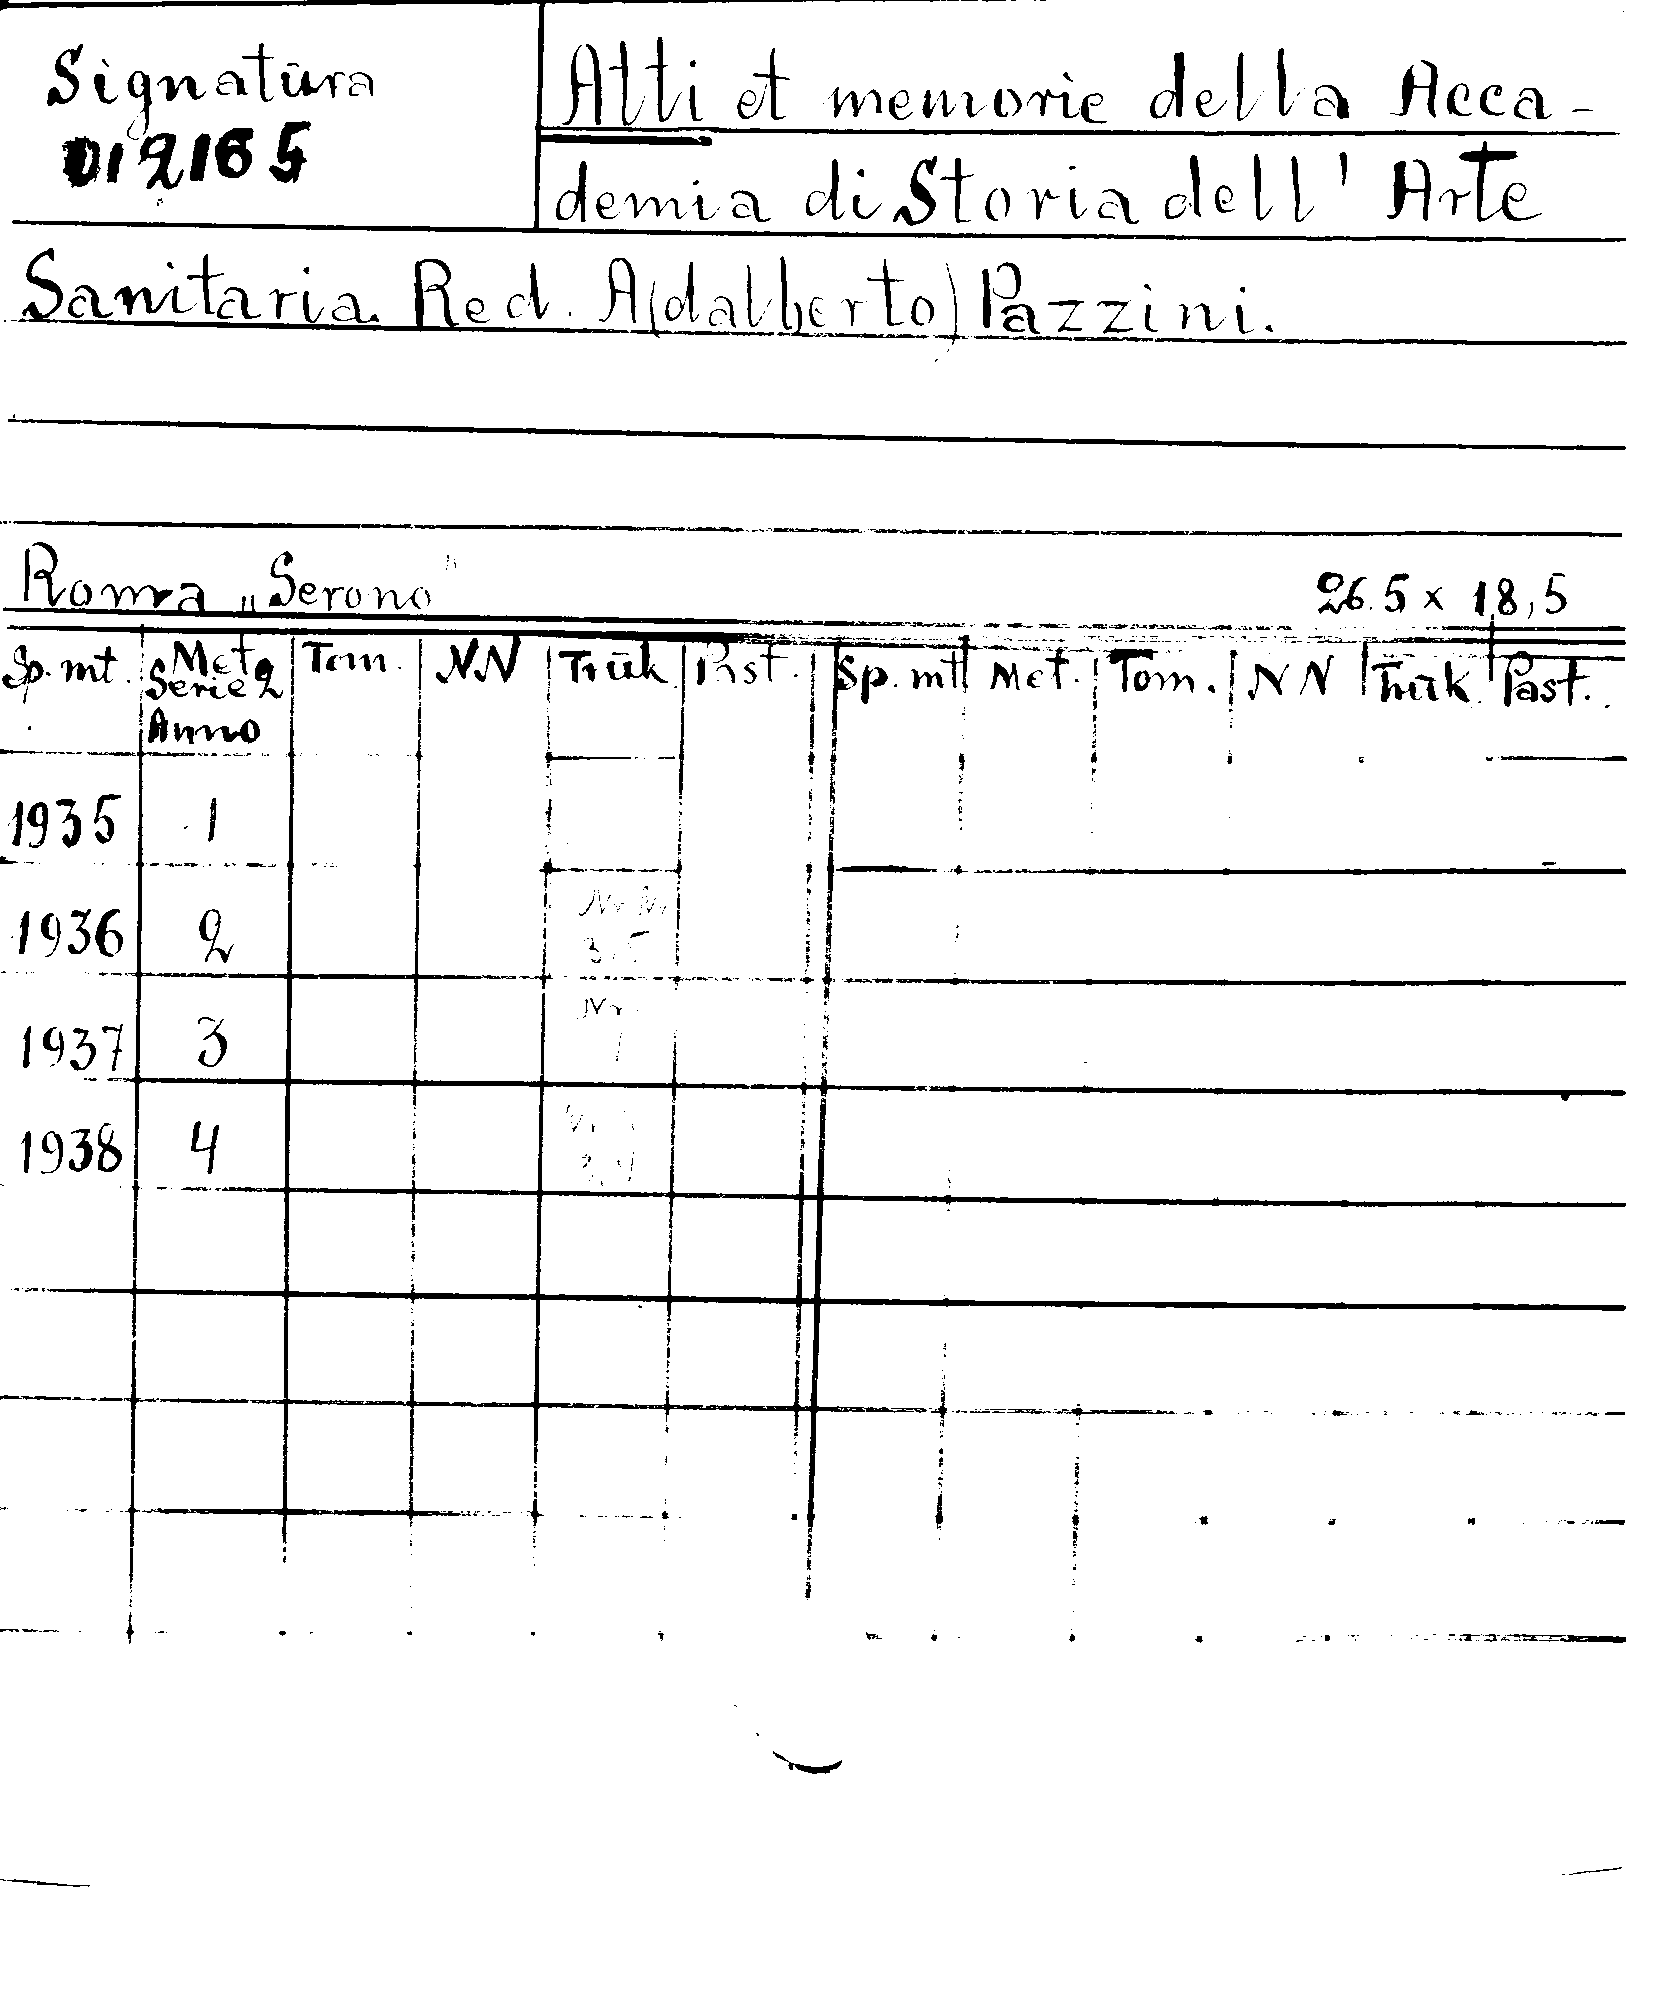 Signatūra
012165
Atti et memorie della Acca-
demia di Storia dell' Arte
Sanitaria. Red. A(dalberto) Pazzini.
Roma „Serono" 26.5 x 18,5
Sp. mt. Met. Tom. NN Trūk. Past. Sp. mt. Met. Tom. NN Trūk. Past.
Serie 2
Anno
1935 1
1936 2 Nr Nr
3,5
1937 3 Nr
1
1938 4
3,4